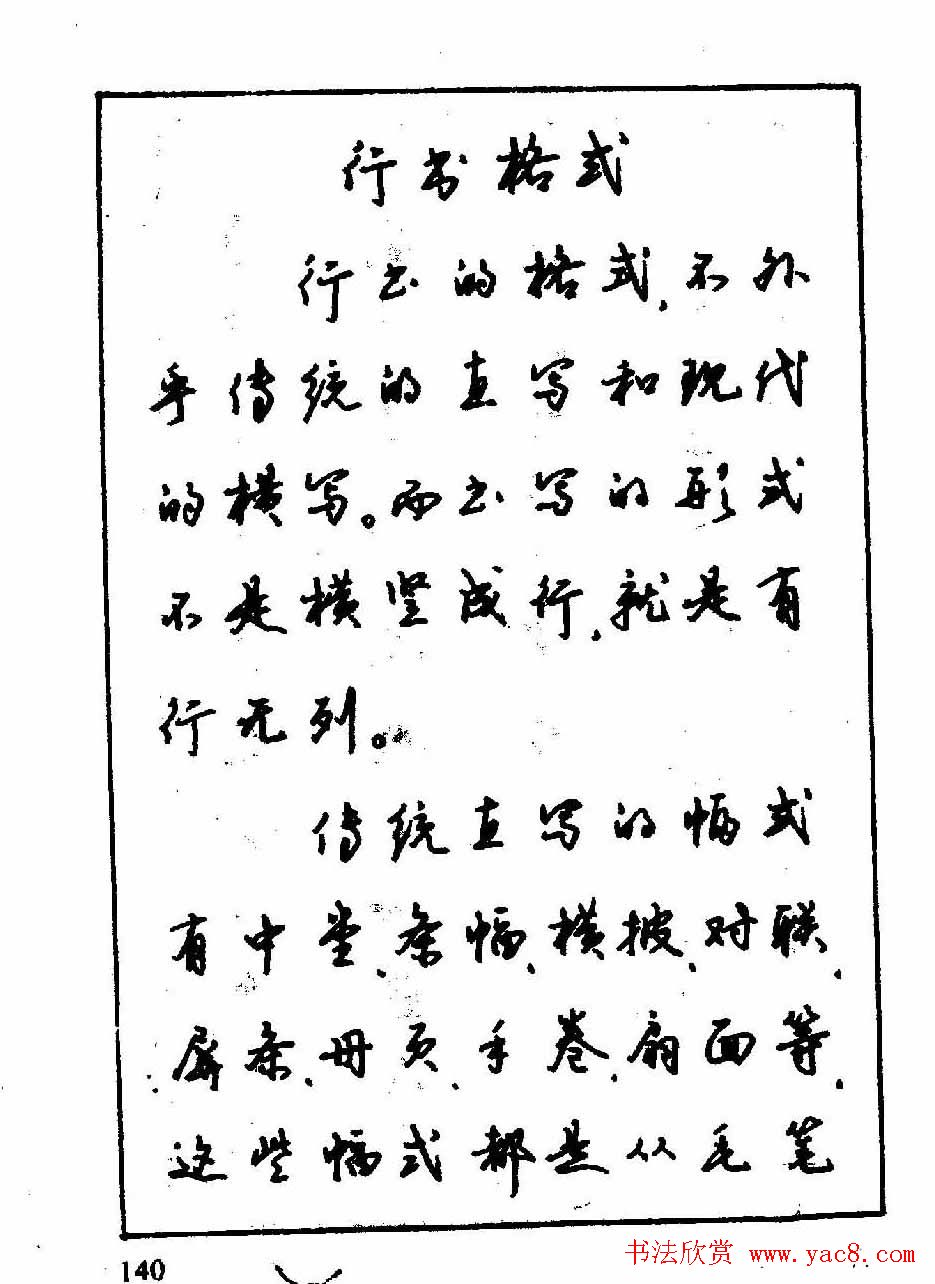 行书格式
行书的格式,不外
乎传统的直写和现代
的横写。而书写的形式
不是横竖成行,就是有
行无列。
传统直写的幅式
有中堂、条幅、横披、对联、
屏条、册页、手卷、扇面等,
这些幅式都是从毛笔
140
书法欣赏 www.yac8.com